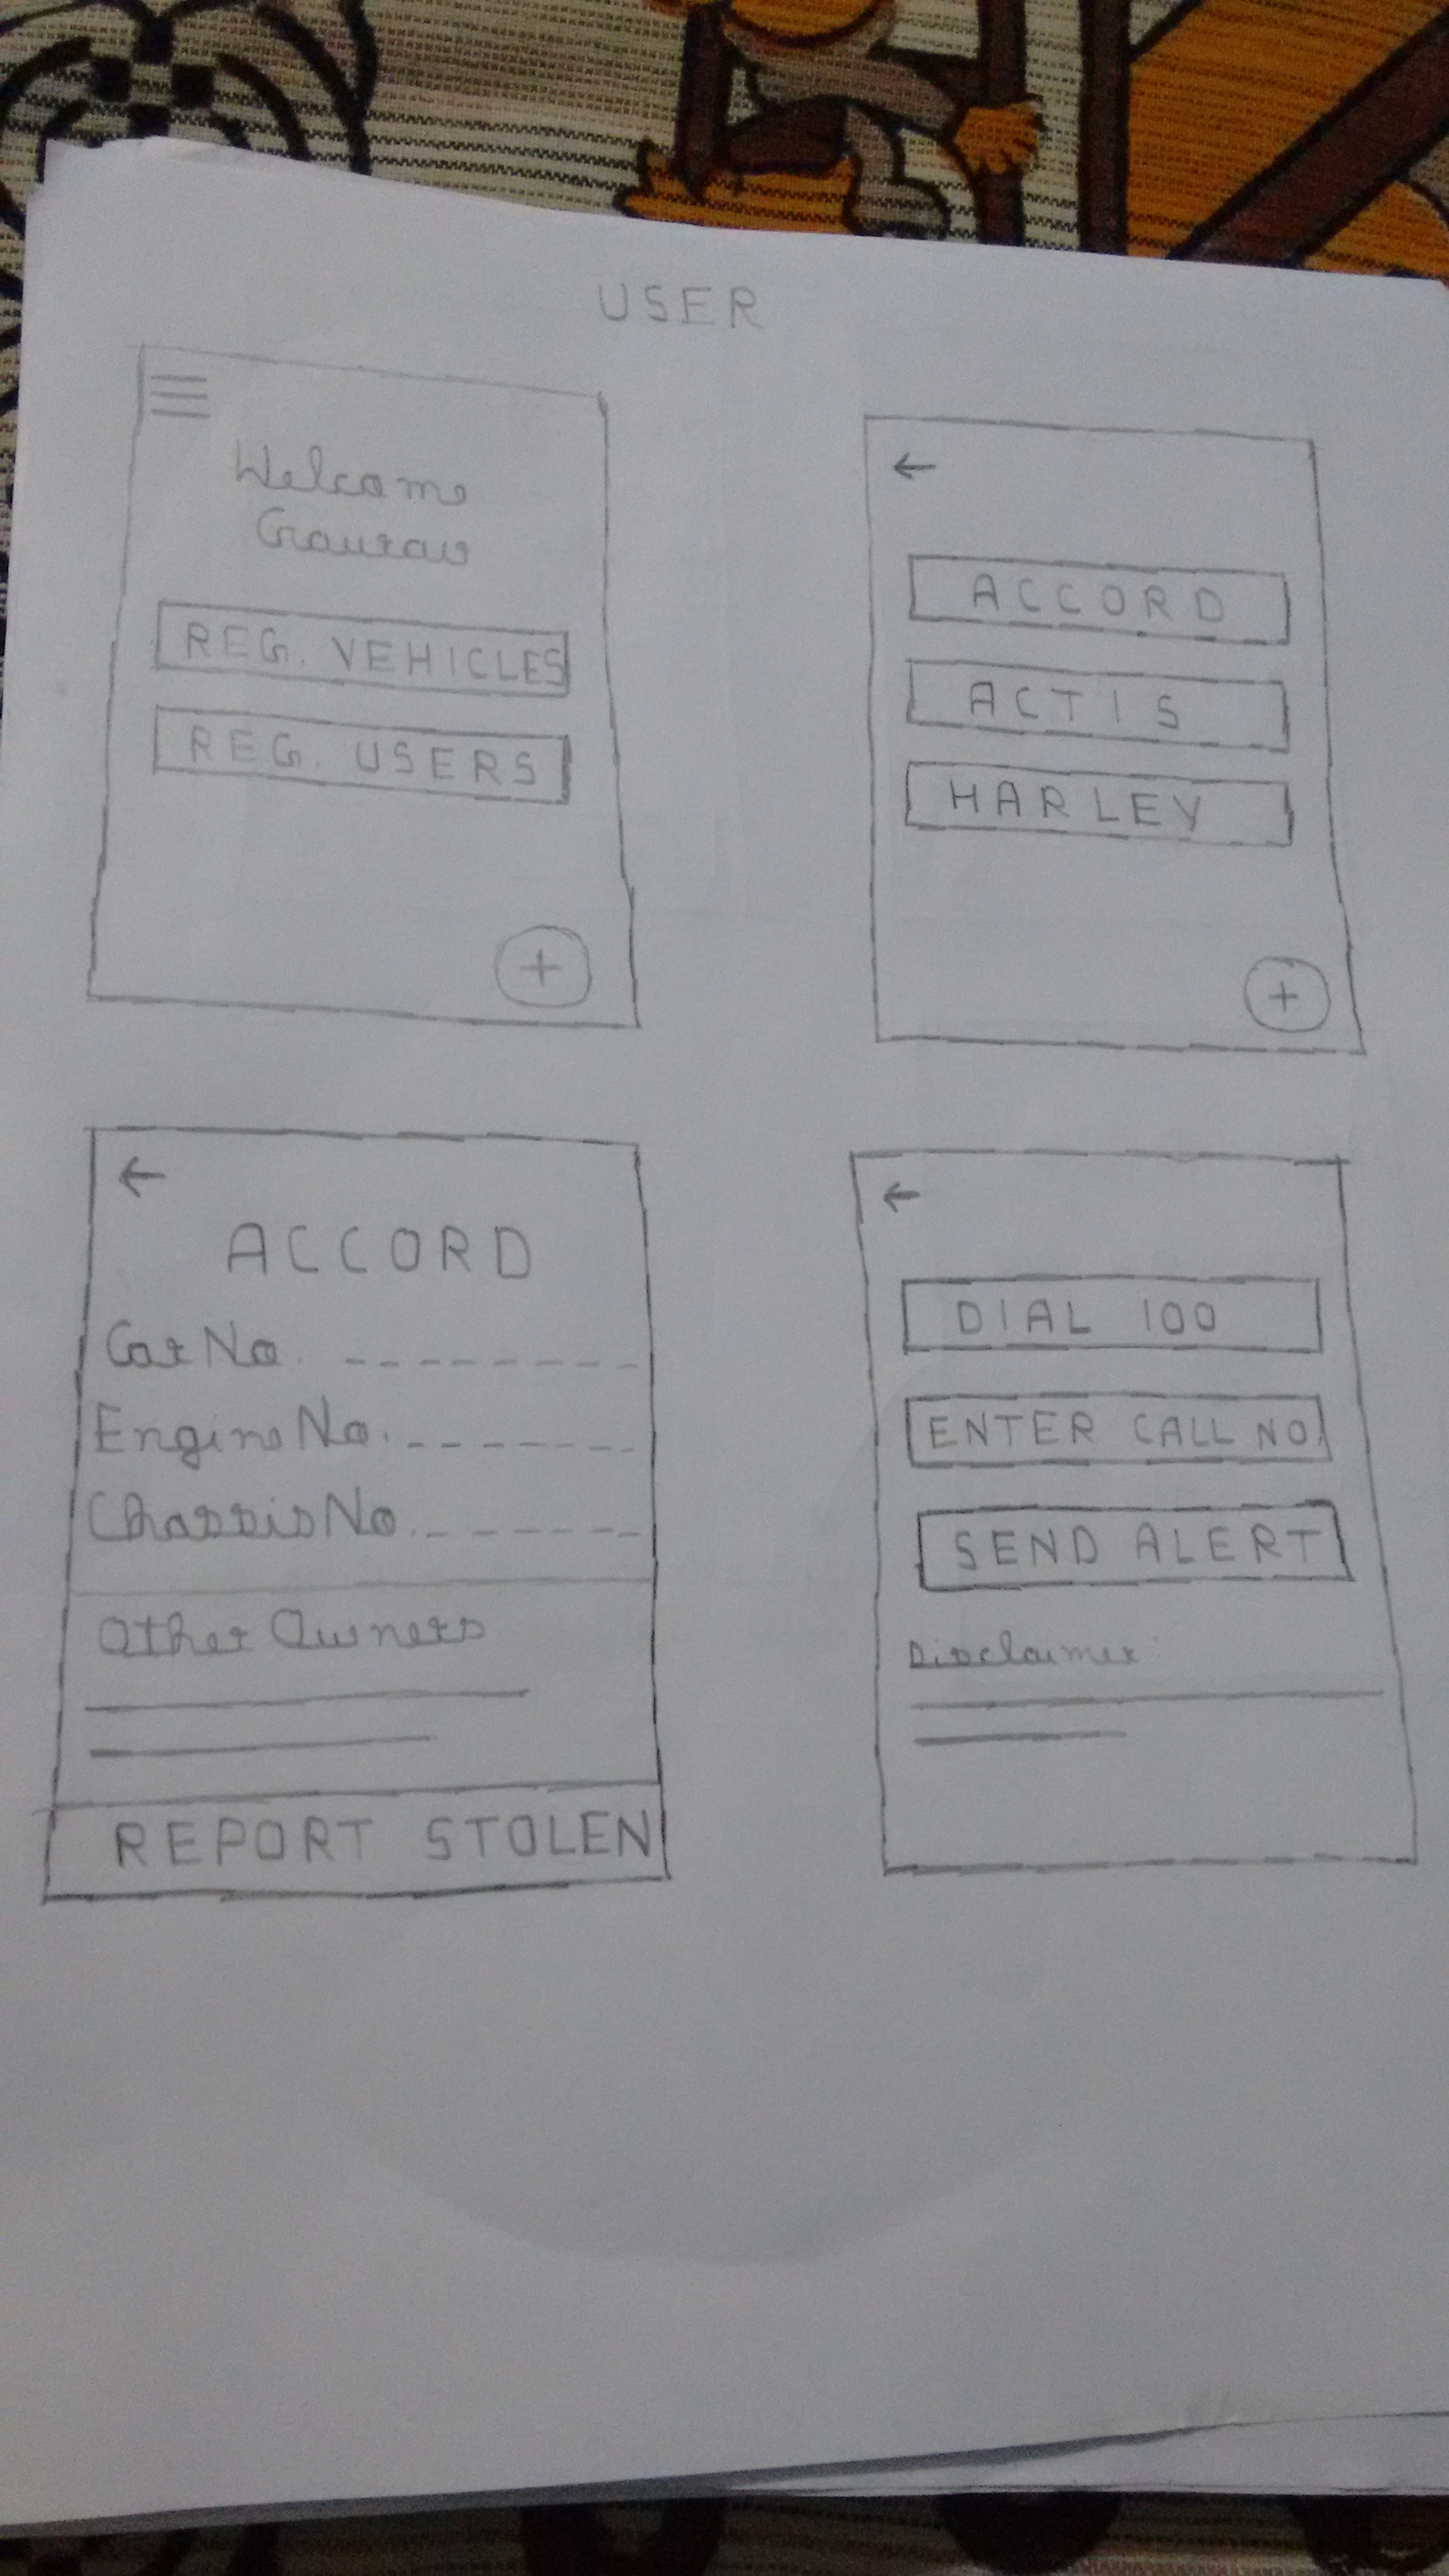 USER
Welcome
Gaurav
REG. VEHICLES
REG. USERS
+
←
ACCORD
ACTIS
HARLEY
+
←
ACCORD
Car No. ---------
Engine No. -------
Chassis No. -------
Other Owners
REPORT STOLEN
←
DIAL 100
ENTER CALL NO.
SEND ALERT
Disclaimer: